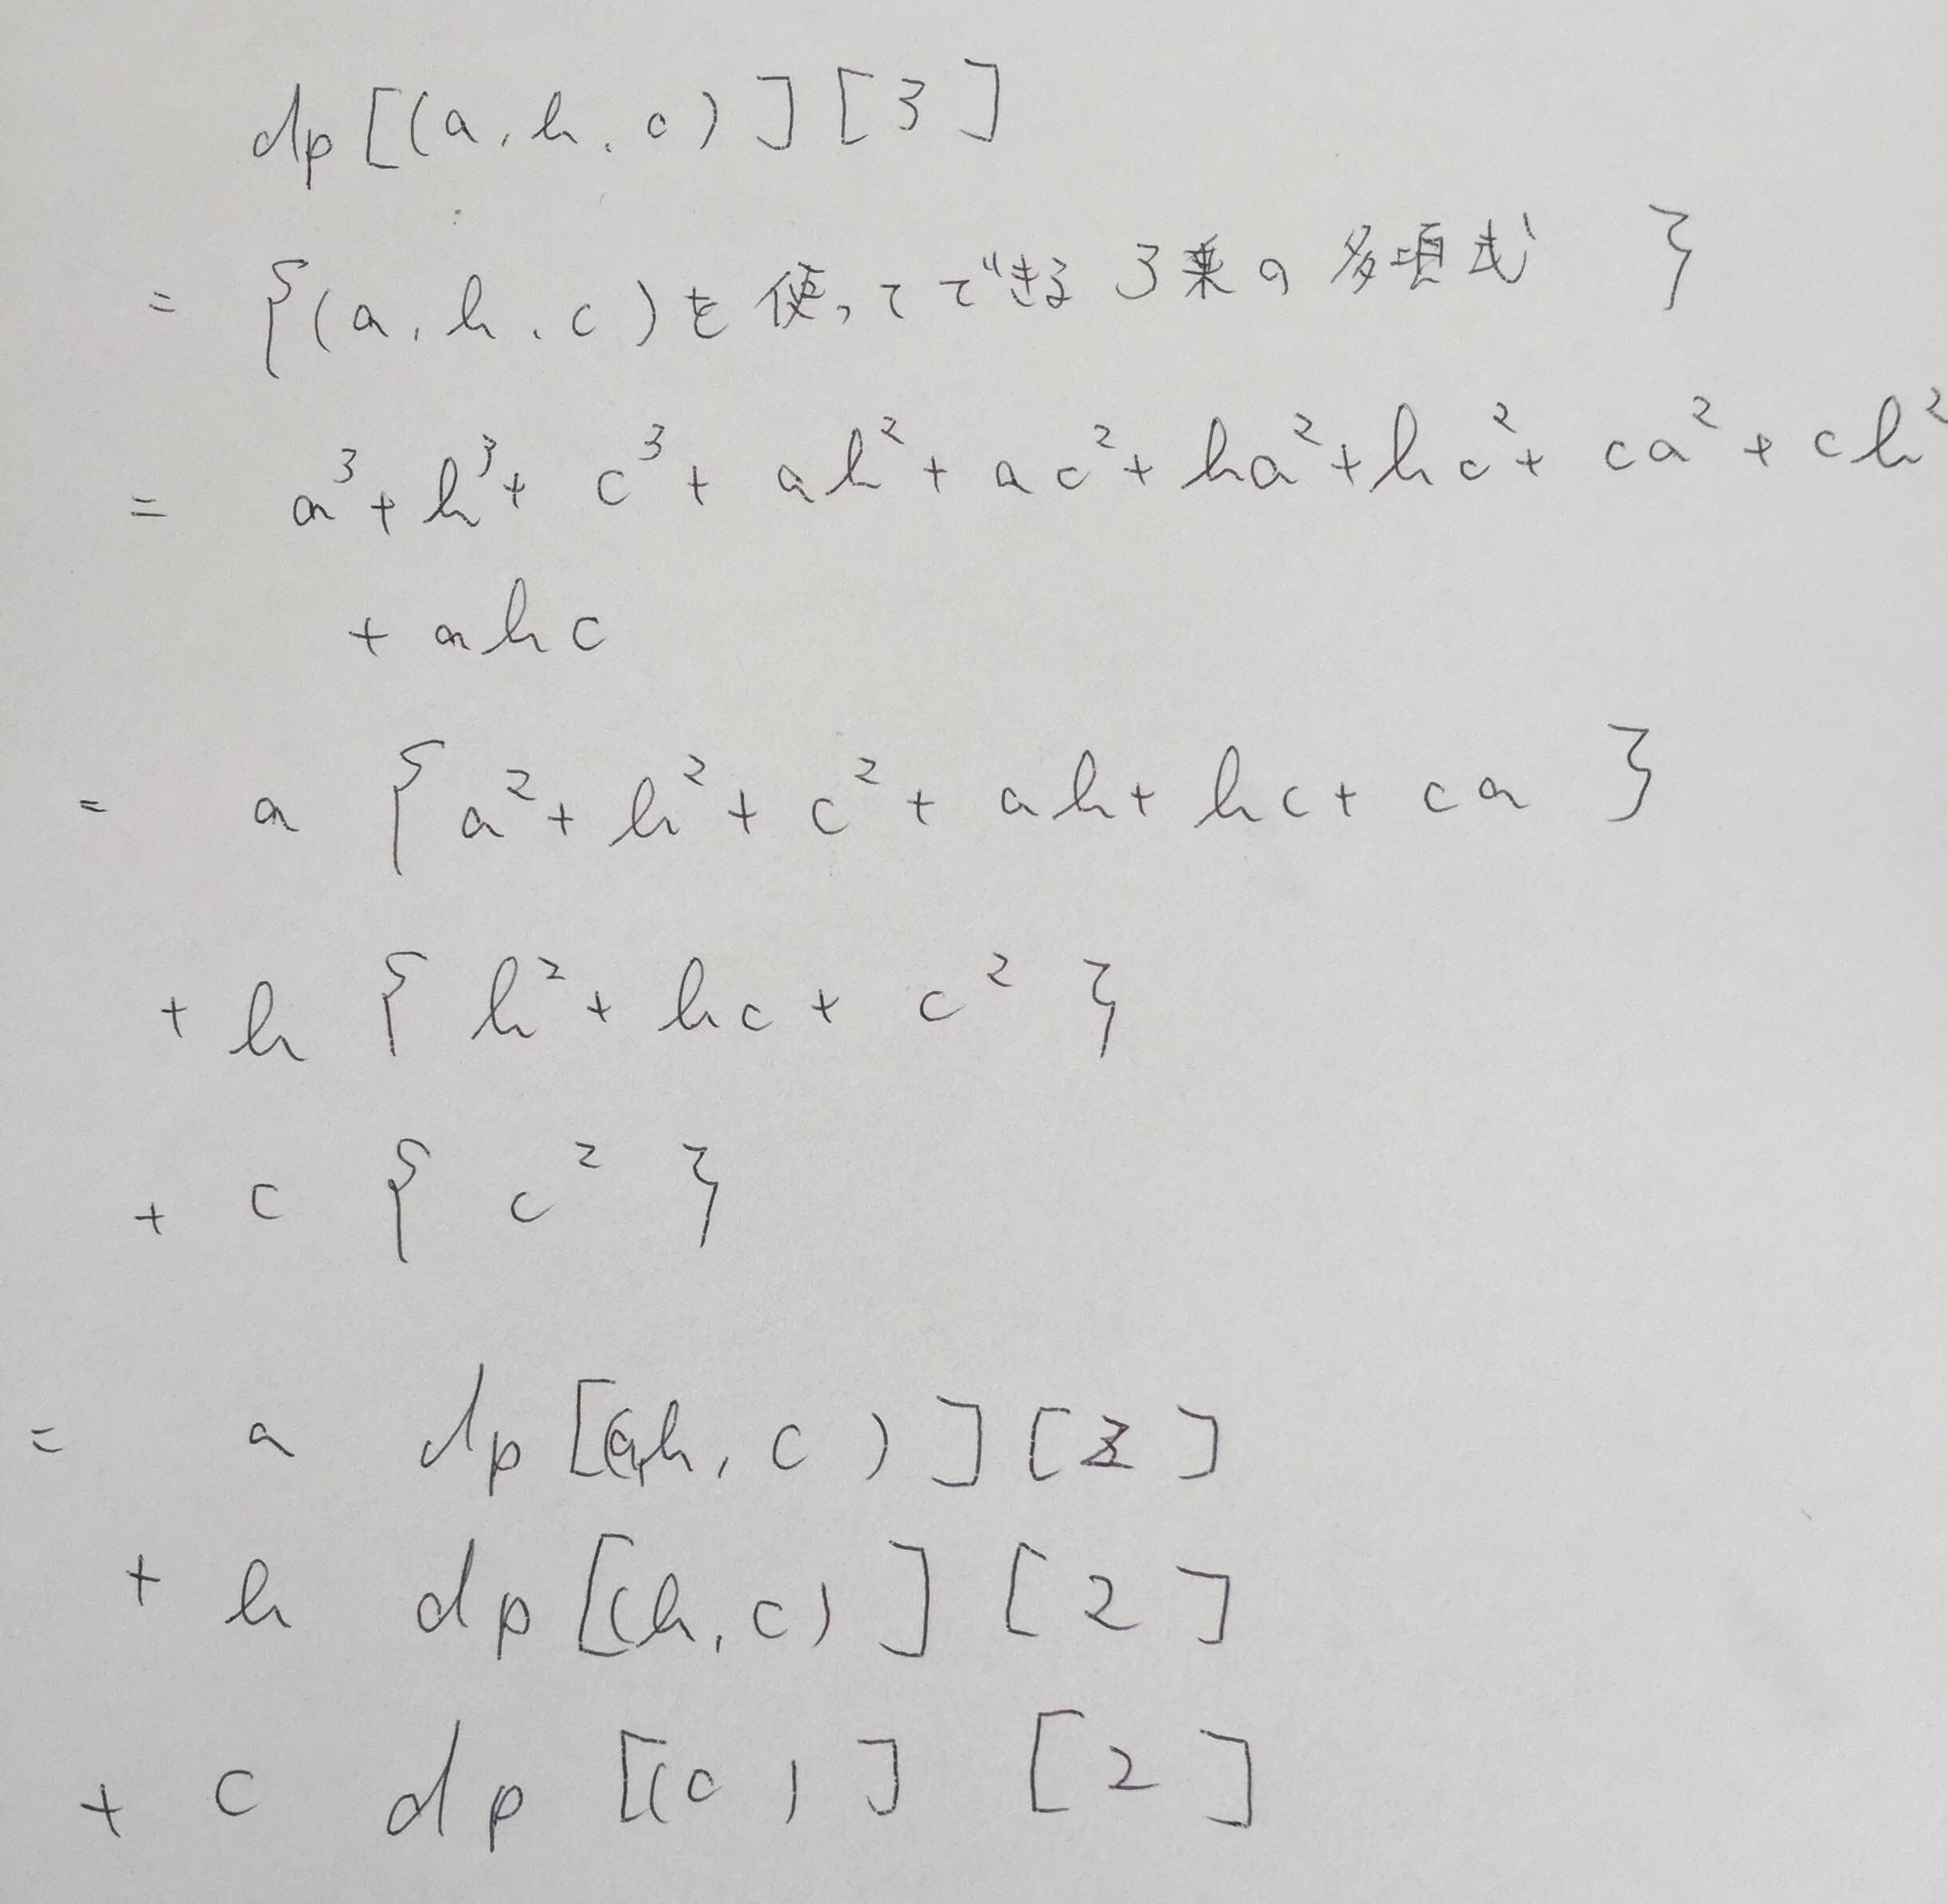 dp[(a, b, c)][3]
= {(a, b, c)を使ってできる3乗の多項式 }
= a³+b³+ c³+ ab²+ ac²+ ba²+bc²+ ca²+ cb²
+ abc
= a {a²+ b²+ c²+ ab+ bc+ ca }
+ b { b²+ bc+ c² }
+ c { c² }
= a dp[(a,b, c)][2]
+ b dp[(b, c)][2]
+ c dp[(c)][2]